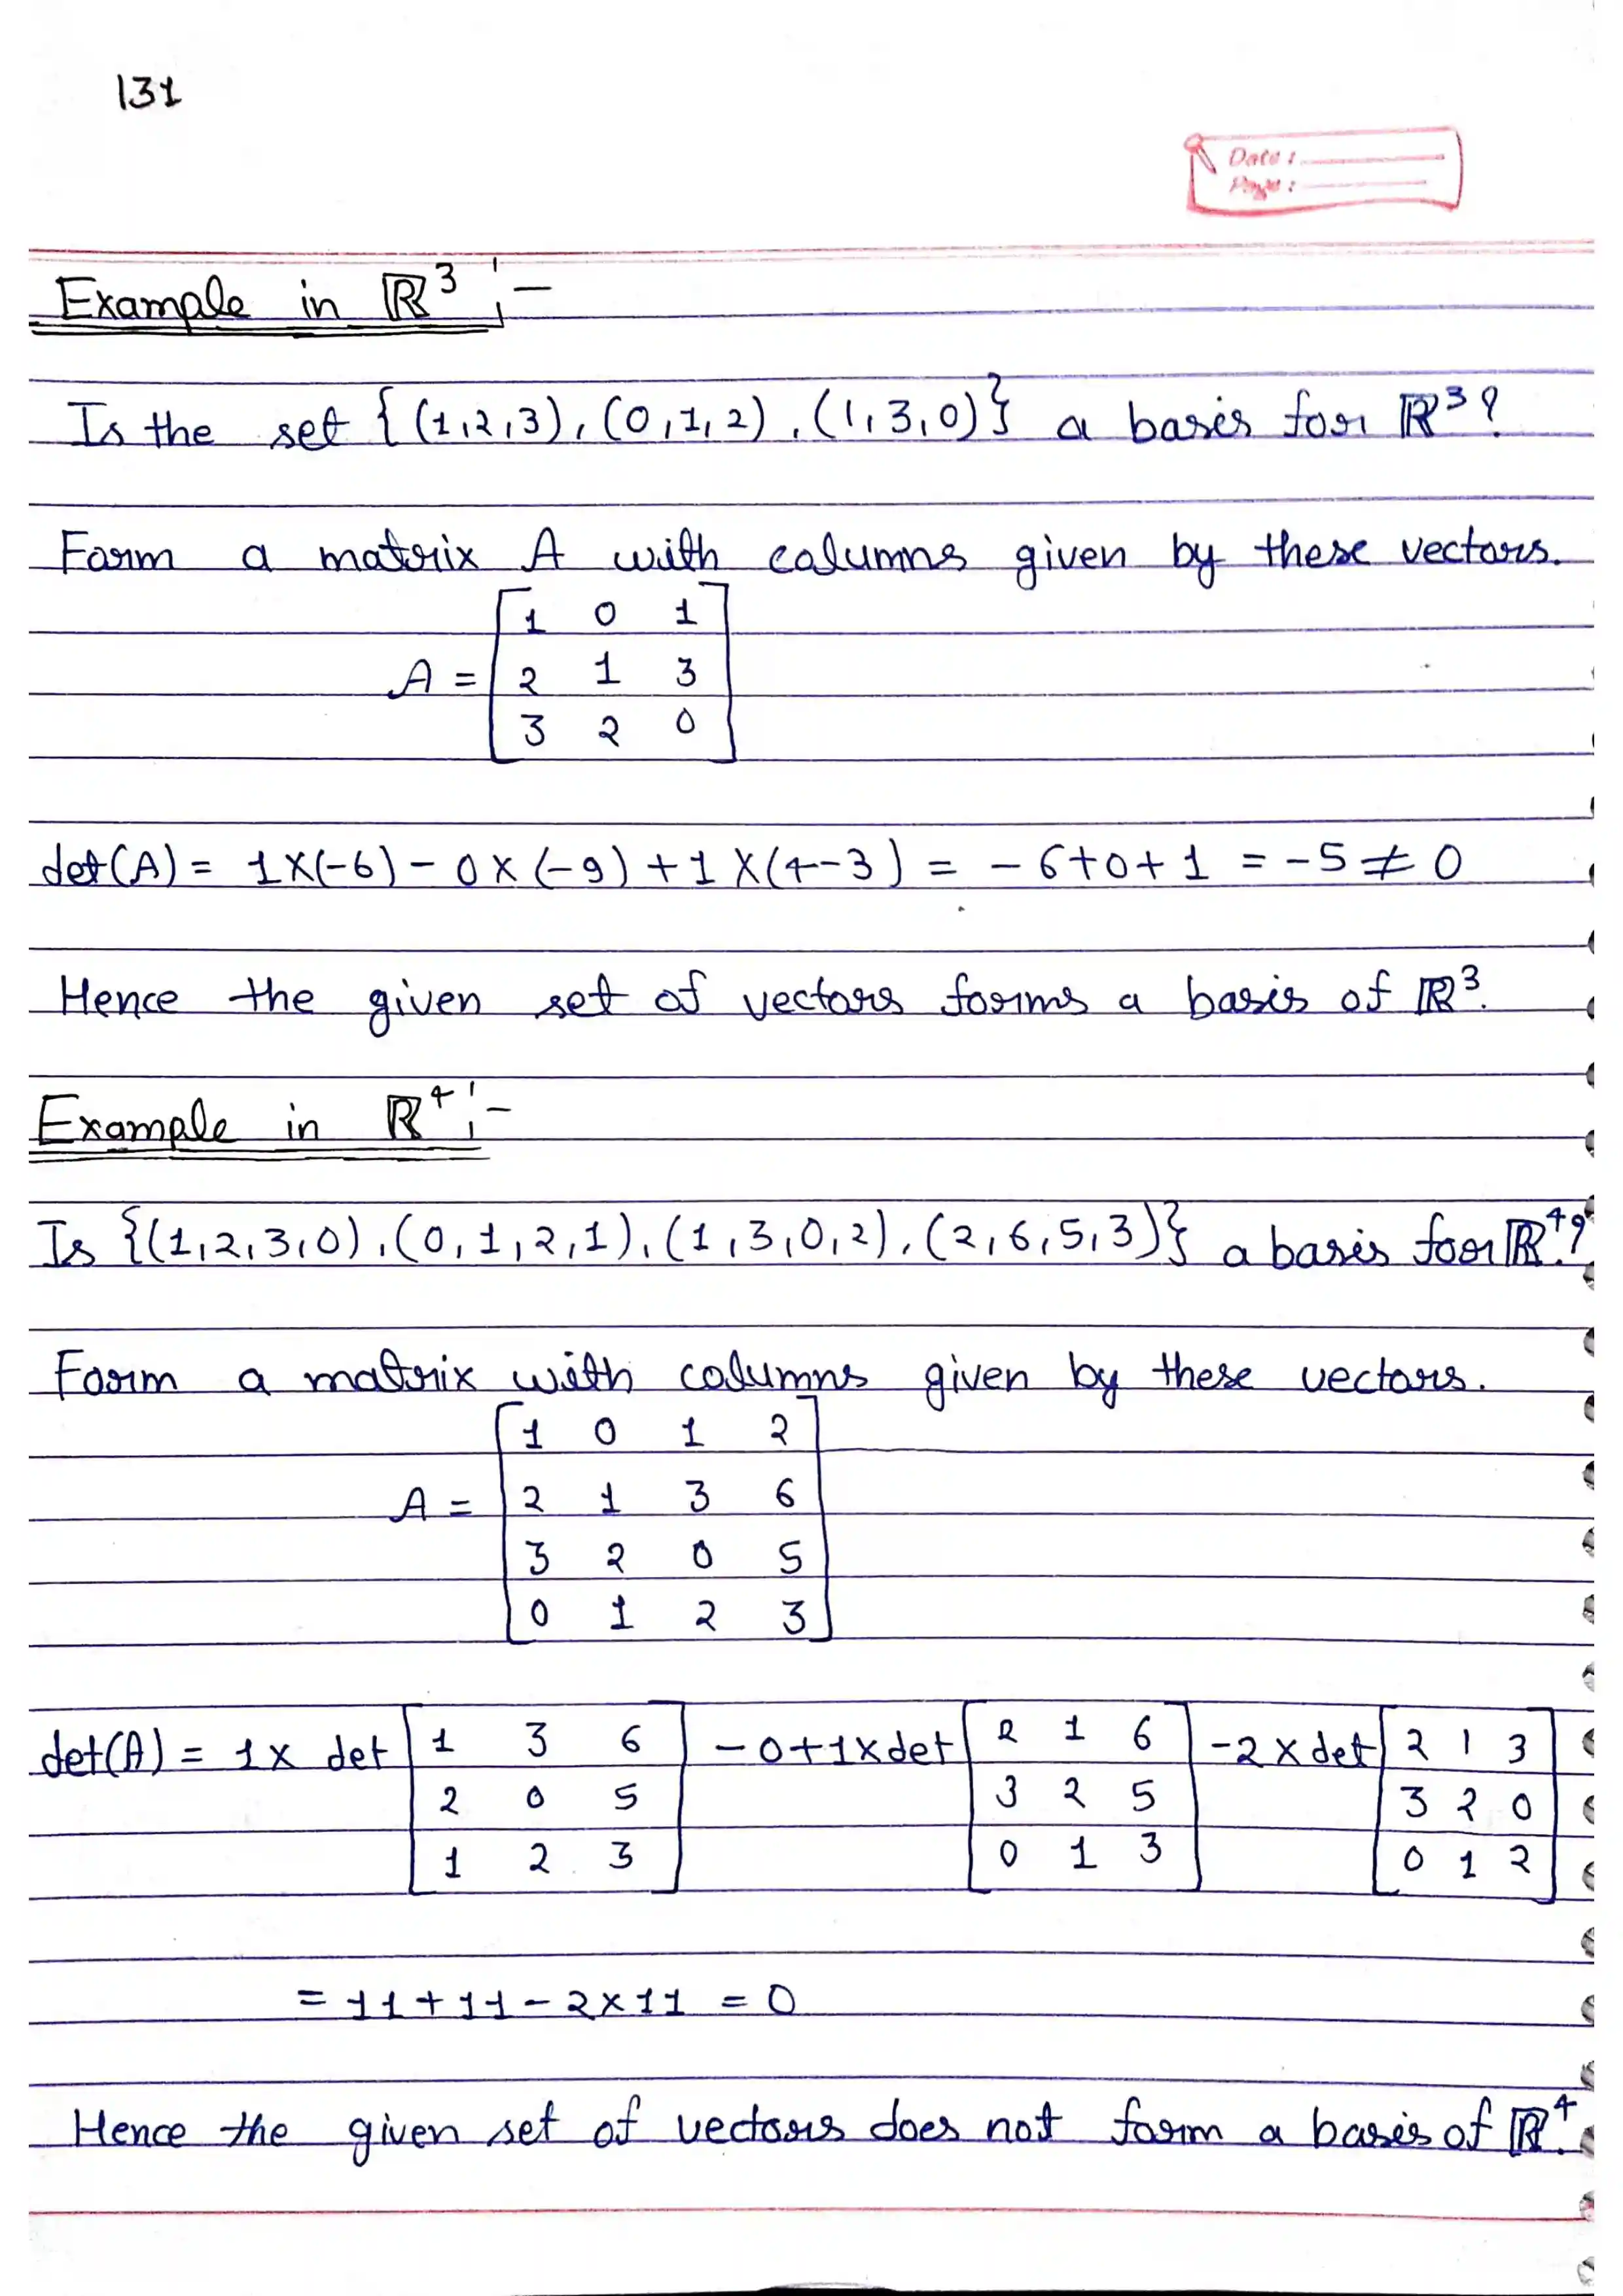 131
Date :
Page :
Example in ℝ³ :-
Is the set {(1,2,3), (0,1,2), (1,3,0)} a basis for ℝ³?
Form a matrix A with columns given by these vectors.
1 0 1
A = 2 1 3
3 2 0
det(A) = 1×(-6) - 0×(-9) + 1×(4-3) = -6+0+1 = -5 ≠ 0
Hence the given set of vectors forms a basis of ℝ³.
Example in ℝ⁴ :-
Is {(1,2,3,0), (0,1,2,1), (1,3,0,2), (2,6,5,3)} a basis for ℝ⁴?
Form a matrix with columns given by these vectors.
1 0 1 2
A = 2 1 3 6
3 2 0 5
0 1 2 3
det(A) = 1× det [1 3 6] - 0 + 1×det [2 1 6] - 2×det [2 1 3]
2 0 5 3 2 5 3 2 0
1 2 3 0 1 3 0 1 2
= 11 + 11 - 2×11 = 0
Hence the given set of vectors does not form a basis of ℝ⁴.